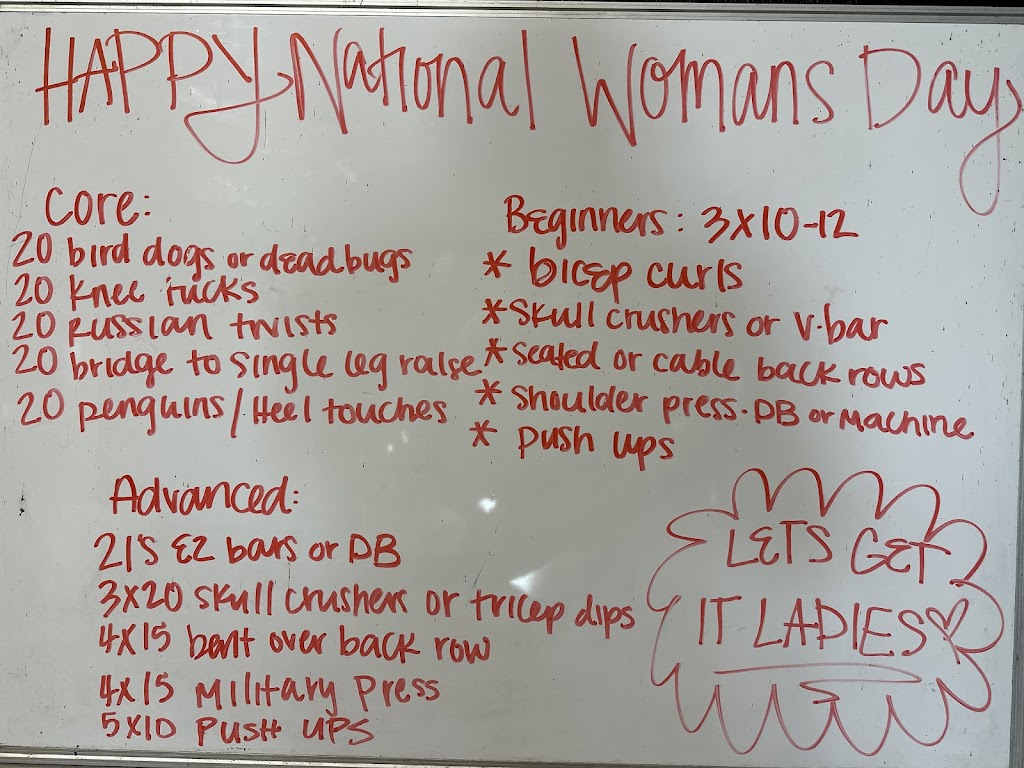 HAPPY National Womans Day
Core:
20 bird dogs or deadbugs
20 Knee tucks
20 Russian twists
20 bridge to single leg raise
20 penguins / Heel touches
Beginners: 3x10-12
* bicep curls
* Skull crushers or V.bar
* Seated or cable back rows
* Shoulder press. DB or Machine
* push ups
Advanced:
21's EZ bars or DB
3x20 skull crushers or tricep dips
4x15 bent over back row
4x15 Military Press
5x10 PUSH UPS
LETS GET
IT LADIES